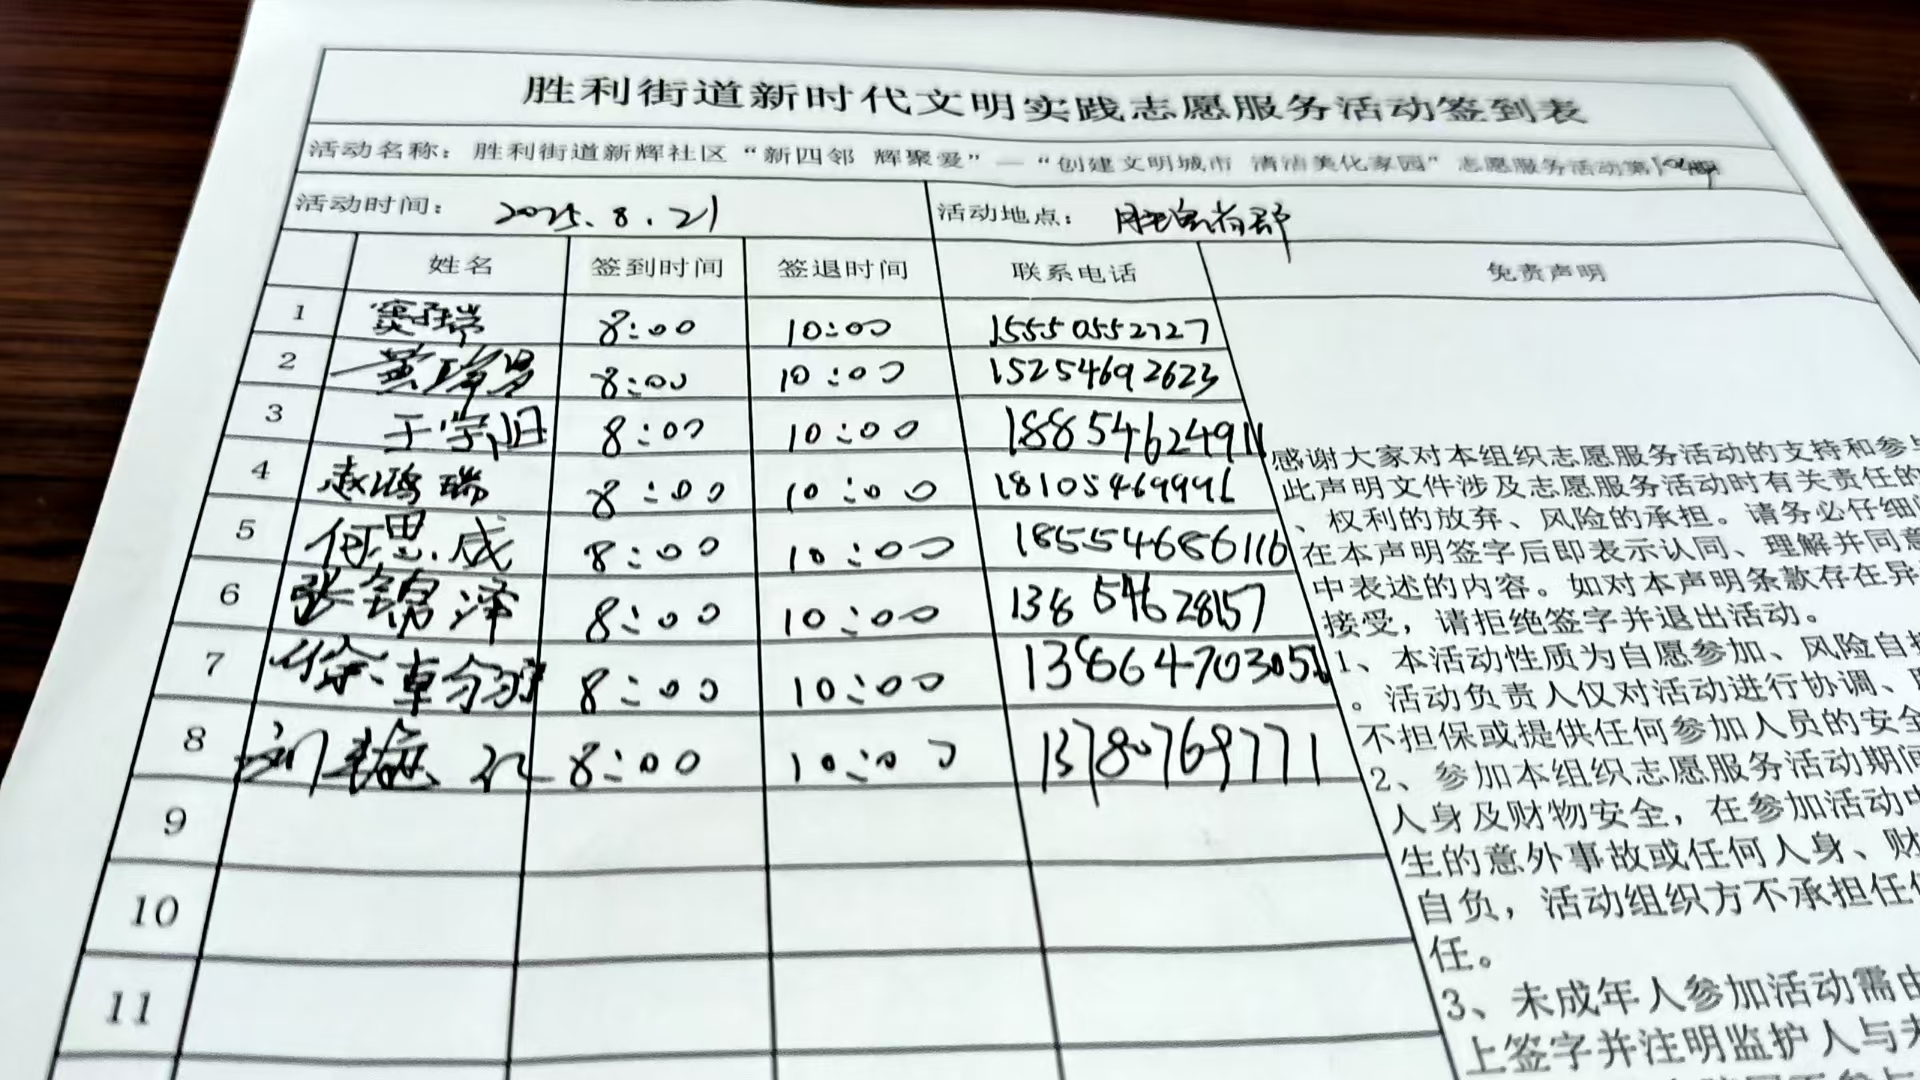 胜利街道新时代文明实践志愿服务活动签到表
活动名称：胜利街道新辉社区“新四邻 辉聚爱”—“创建文明城市 清洁美化家园”志愿服务活动第
活动时间： 2025.8.21 活动地点：
姓名 签到时间 签退时间 联系电话 免责声明
1 窦瑞 8:00 10:00 15550552727
2 黄 8:00 10:00 15254692623
3 于学旧 8:00 10:00 18854624911
4 赵鸿瑞 8:00 10:00 18105469996
5 何思成 8:00 10:00 18554686116
6 张锦泽 8:00 10:00 13854628157
7 徐 8:00 10:00 1386470305
8 刘 8:00 10:00 13780769771
9
10
11
感谢大家对本组织志愿服务活动的支持和参与
此声明文件涉及志愿服务活动时有关责任的
、权利的放弃、风险的承担。请务必仔细
在本声明签字后即表示认同、理解并同意
中表述的内容。如对本声明条款存在异
接受，请拒绝签字并退出活动。
1、本活动性质为自愿参加、风险自担
。活动负责人仅对活动进行协调、
不担保或提供任何参加人员的安全
2、参加本组织志愿服务活动期间
人身及财物安全，在参加活动中
生的意外事故或任何人身、财
自负，活动组织方不承担任何
任。
3、未成年人参加活动需由
上签字并注明监护人与未